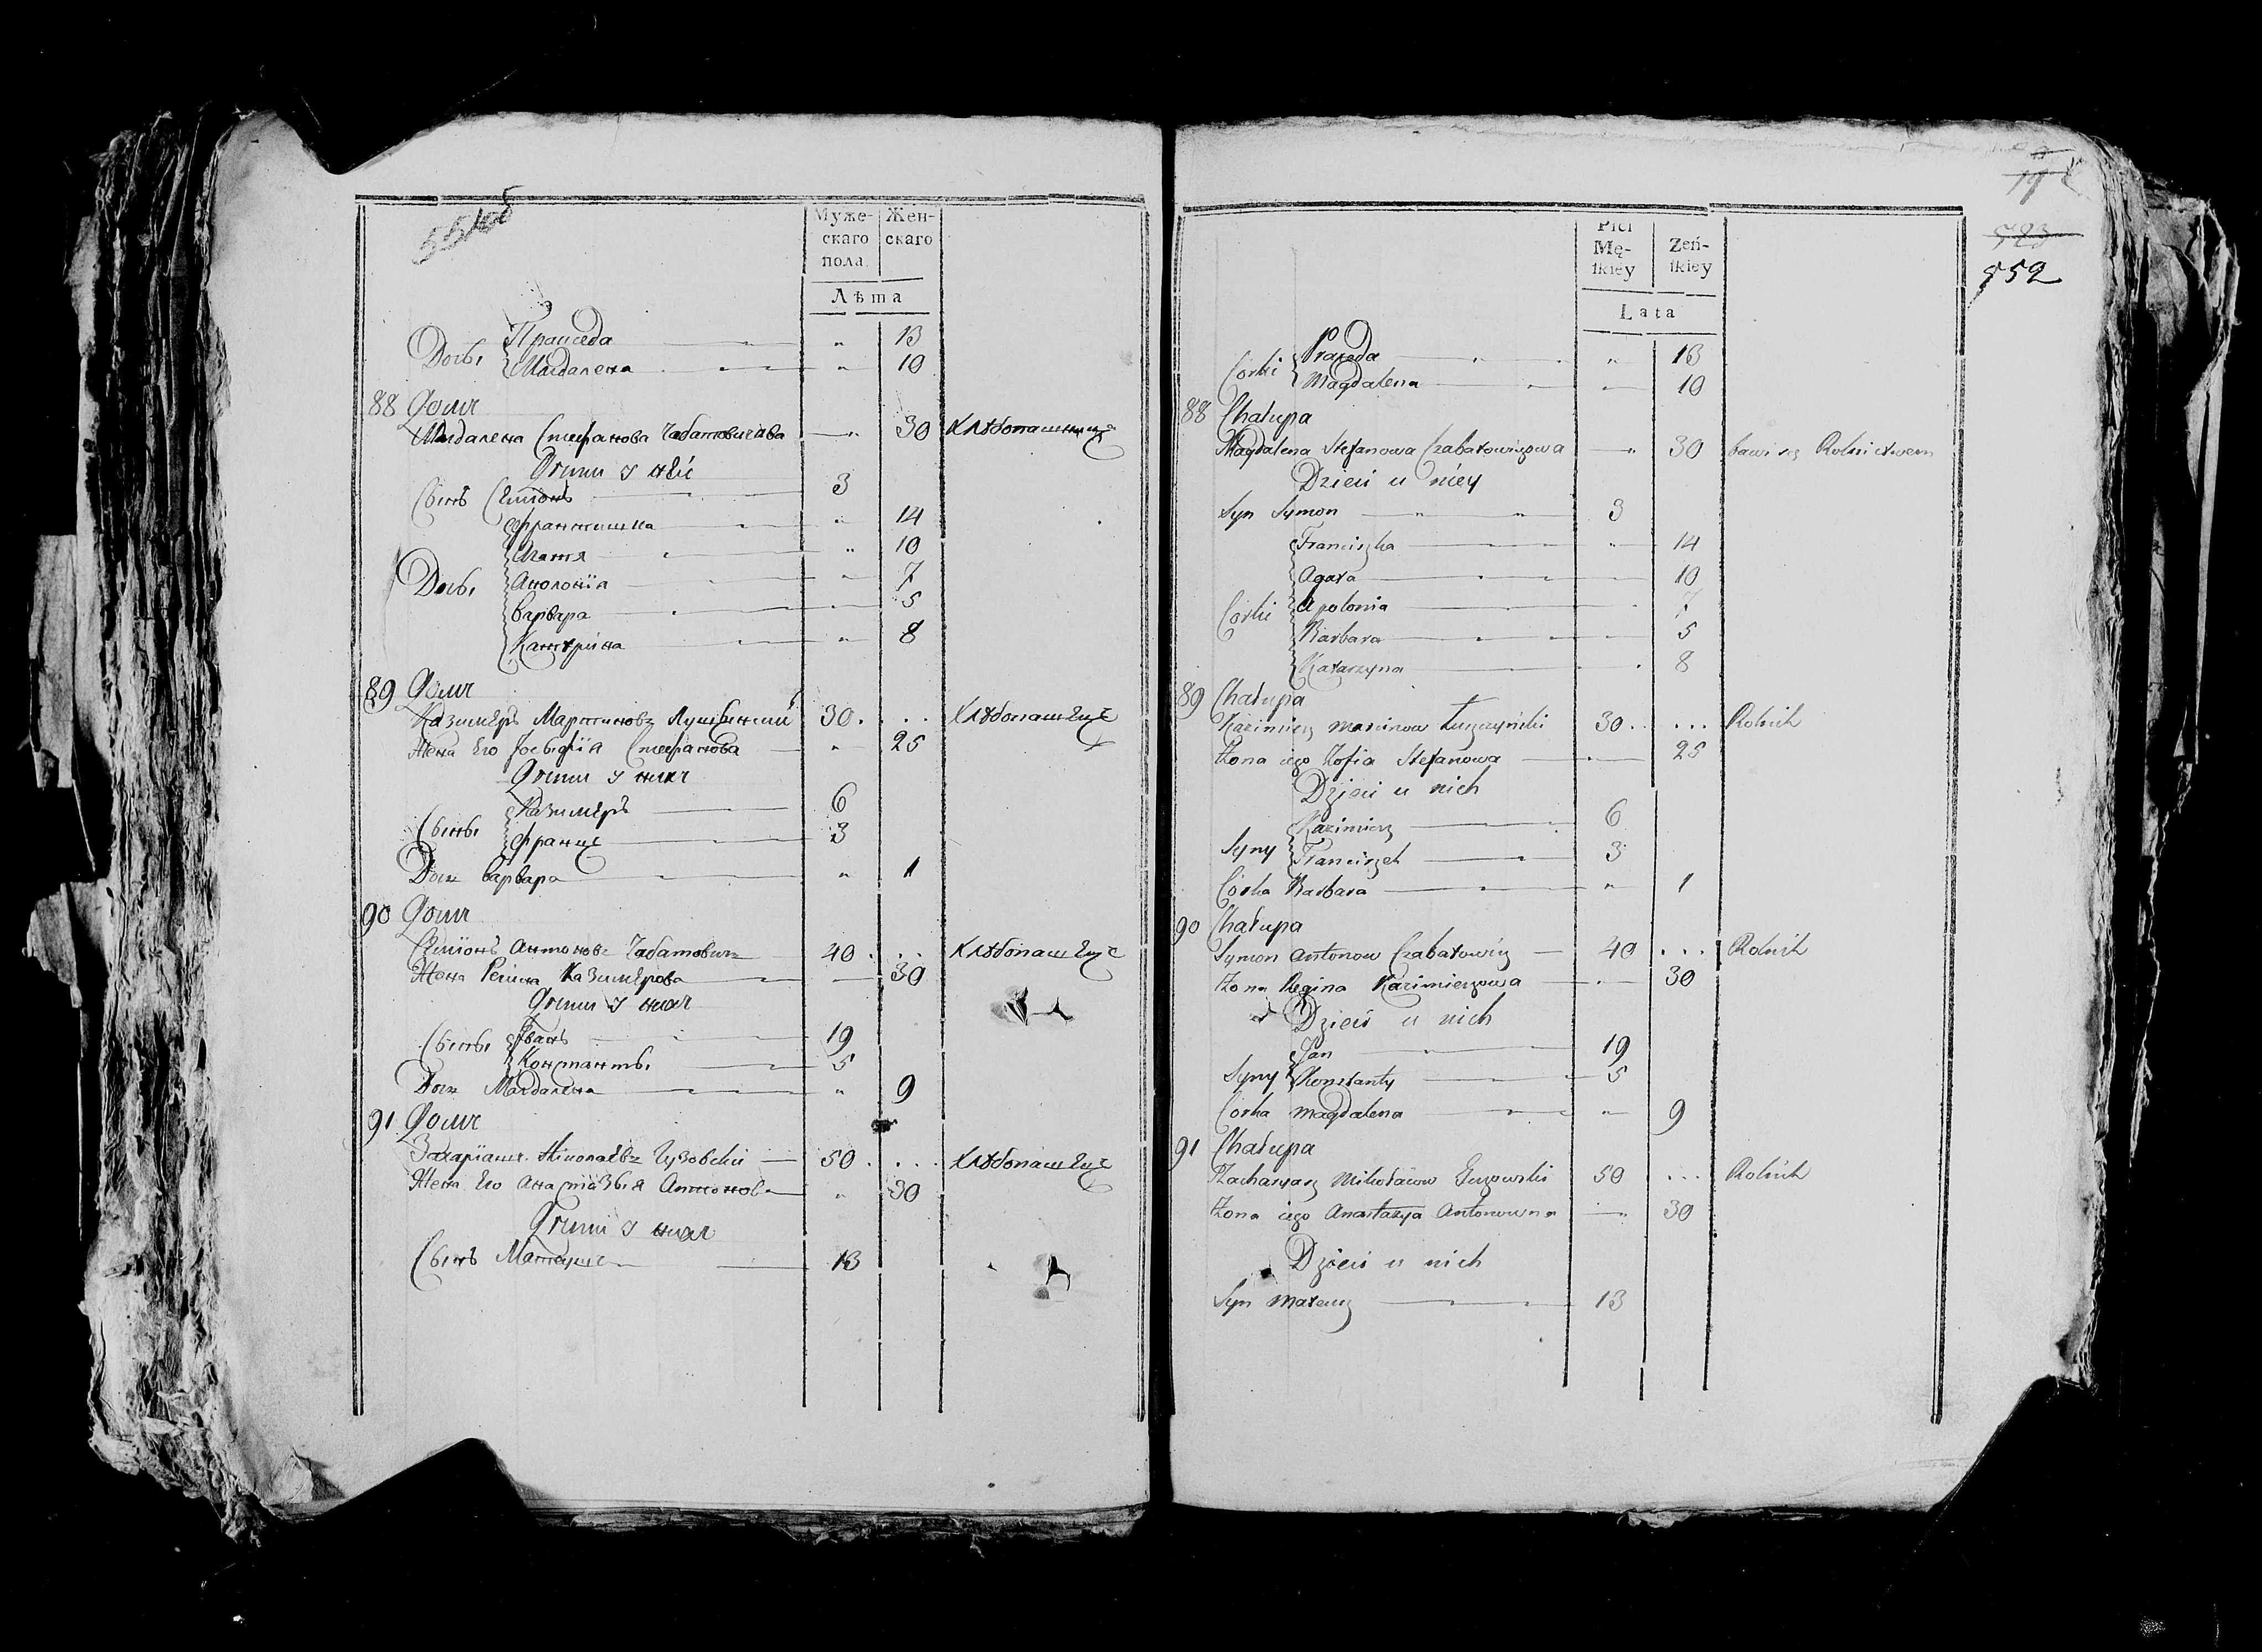 551об
Муже- Жен-
скаго скаго
пола.
Лѣта
Праксeда " 13
Дочь Магдалена " 10
88 Домъ
Магдалена Стефанова Чабатовичова " 30 Хлѣбопашница
Дѣти у неё
Сынъ Семіонъ 3
Францишка " 14
Агата " 10
Дочь Аполонія " 7
Варвара " 5
Катерина " 8
89 Домъ
Казимеръ Мартиновъ Лущинский 30 . . . Хлѣбопашецъ
Жена Его Зофія Стефанова " 25
Дѣти у нихъ
Казимеръ 6
Сыны Франце 3
Дочь Варвара " 1
90 Домъ
Семіонъ Антоновъ Чабатовичъ 40 . . . Хлѣбопашецъ
Жена Регина Казимерова 30
Дѣти у нихъ
Сыны Иванъ 19
Константы 5
Дочь Магдалена " 9
91 Домъ
Захаріашъ Николаевъ Гузовскій 50 . . . Хлѣбопашецъ
Жена Его Анастазыя Антонов " 30
Дѣти у нихъ
Сынъ Матеушъ 13
19
523
552
Płci
Mę- Zeń-
ſkiey ſkiey
Lata
Praxeda " 13
Corki Magdalena " 10
88 Chałupa
Magdalena Stefanowa Czabatowiczowa " 30 bawi się Rolnictwem
Dzieci u niey
Syn Symon " " 3
Franciszka " 14
Agata 10
Corki Apolonia 7
Barbara 5
Katarzyna 8
89 Chałupa
Kazimierz Marcinow Łuszczyński 30 . . . . Rolnik
Żona iego Zofia Stefanowa 25
Dzieci u nich
Kazimierz 6
Syny Franciszek 3
Córka Barbara " 1
90 Chałupa
Symon Antonow Czabatowicz 40 . . . Rolnik
Żona Regina Kazimierzowa 30
Dzieci u nich
Jan 19
Syny Konstanty 5
Córka Magdalena " 9
91 Chałupa
Zacharyasz Mikołaiow Guzowski 50 . . . Rolnik
Żona iego Anastazya Antonowna 30
Dzieci u nich
Syn Mateusz 13